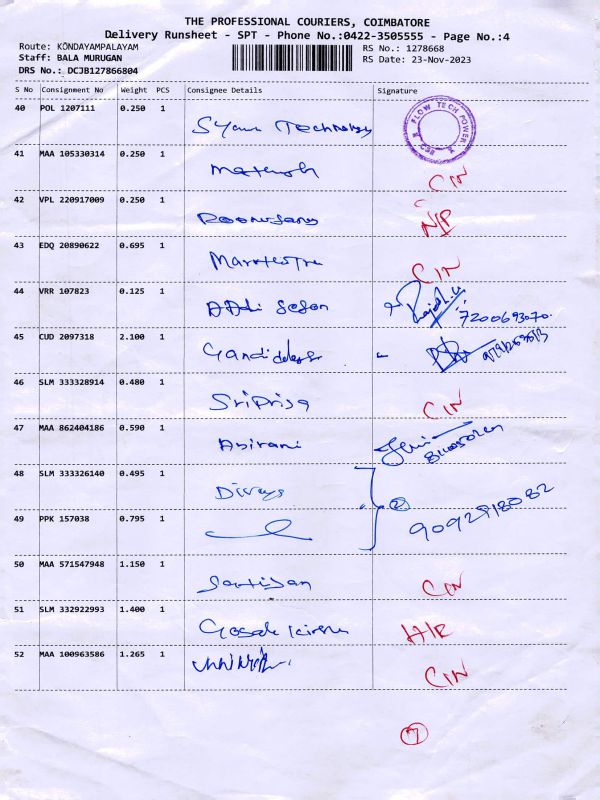 THE PROFESSIONAL COURIERS, COIMBATORE
Delivery Runsheet - SPT - Phone No.:0422-3505555 - Page No.:4
Route: KONDAYAMPALAYAM
RS No.: 1278668
Staff: BALA MURUGAN
RS Date: 23-Nov-2023
DRS No.: DCJB127866804
S No Consignment No Weight PCS Consignee Details Signature
40 POL 1207111 0.250 1
Technology
FLOW TECH POWER
CBE
41 MAA 105330314 0.250 1
CIN
42 VPL 220917009 0.250 1
N/P
43 EDQ 20890622 0.695 1
CIN
44 VRR 107823 0.125 1
7200693070
45 CUD 2097318 2.100 1
46 SLM 333328914 0.480 1
SriPriya
CIN
47 MAA 862404186 0.590 1
Abirani
48 SLM 333326140 0.495 1
Divays
2
49 PPK 157038 0.795 1
9092918082
50 MAA 571547948 1.150 1
CIN
51 SLM 332922993 1.400 1
52 MAA 100963586 1.265 1
CIN
7